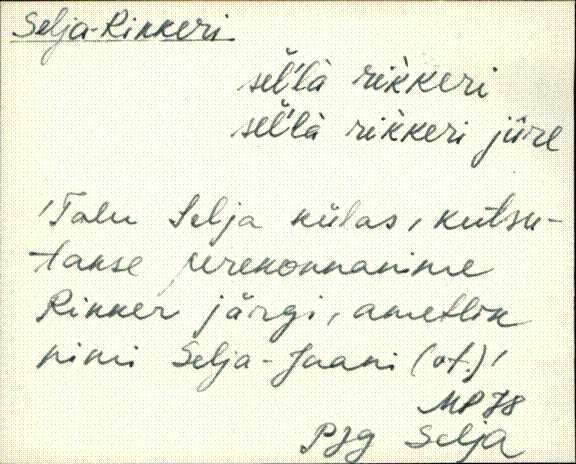 Selja-Rikkeri
seĺ̆là rìkkeri
seĺ̆là rìkkeri jü̂re
'Talu Selja külas, kutsu-
takse perekonnanime
Rikker järgi, ametlik
nimi Selja-Jaani (vt.)'
MP78
PJg Selja